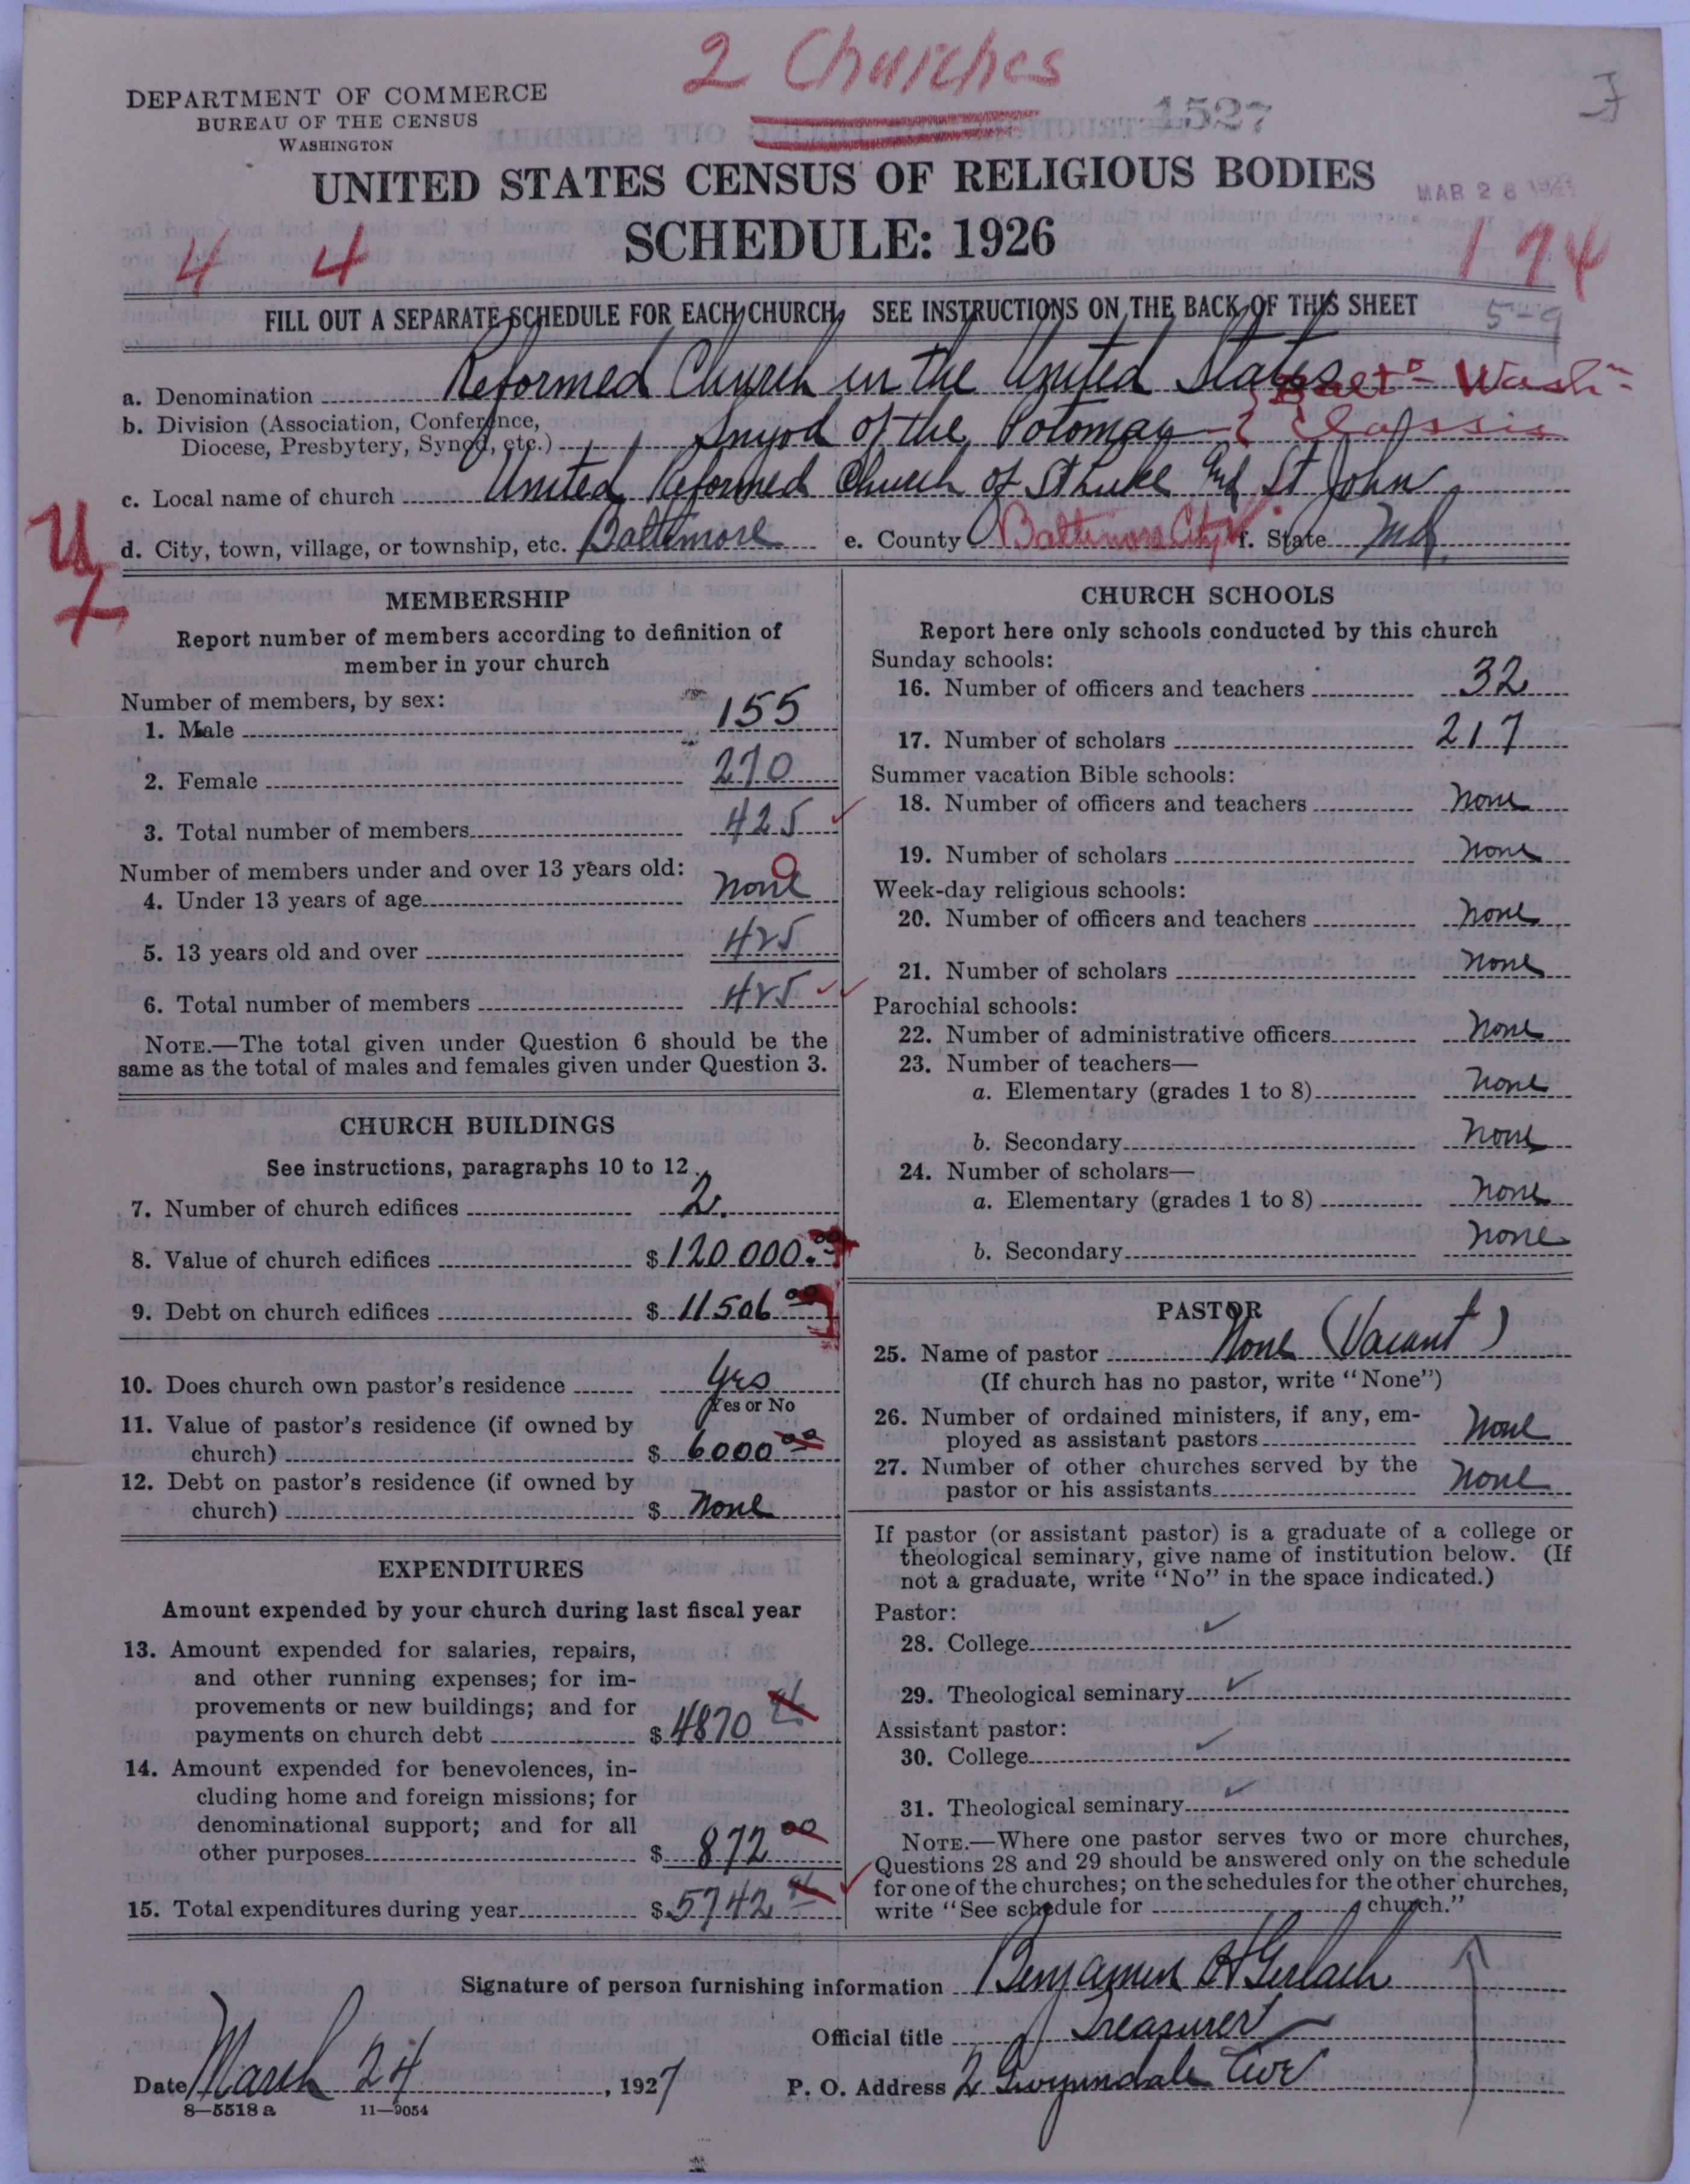 2 Churches
DEPARTMENT OF COMMERCE
BUREAU OF THE CENSUS
WASHINGTON
1527
UNITED STATES CENSUS OF RELIGIOUS BODIES
MAR 28 1927
SCHEDULE: 1926
4 4
174
FILL OUT A SEPARATE SCHEDULE FOR EACH CHURCH SEE INSTRUCTIONS ON THE BACK OF THIS SHEET
5-9
a. Denomination Reformed Church in the United States
Balto- Washn
b. Division (Association, Conference,
Diocese, Presbytery, Synod, etc.) Synod of the Potomac Classis
c. Local name of church United Reformed Church of St Luke and St John
d. City, town, village, or township, etc. Baltimore e. County Baltimore City f. State Md
MEMBERSHIP
Report number of members according to definition of
member in your church
Number of members, by sex:
1. Male 155
2. Female 270
3. Total number of members 425
Number of members under and over 13 years old:
4. Under 13 years of age none 0
5. 13 years old and over 425
6. Total number of members 425
NOTE.—The total given under Question 6 should be the
same as the total of males and females given under Question 3.
CHURCH BUILDINGS
See instructions, paragraphs 10 to 12
7. Number of church edifices 2
8. Value of church edifices $120 000.00
9. Debt on church edifices $11506 00
10. Does church own pastor's residence Yes
Yes or No
11. Value of pastor's residence (if owned by
church) $ 6000 00
12. Debt on pastor's residence (if owned by
church) $ None
EXPENDITURES
Amount expended by your church during last fiscal year
13. Amount expended for salaries, repairs,
and other running expenses; for im-
provements or new buildings; and for
payments on church debt $4870
14. Amount expended for benevolences, in-
cluding home and foreign missions; for
denominational support; and for all
other purposes $ 872 00
15. Total expenditures during year $5742
CHURCH SCHOOLS
Report here only schools conducted by this church
Sunday schools:
16. Number of officers and teachers 32
17. Number of scholars 217
Summer vacation Bible schools:
18. Number of officers and teachers none
19. Number of scholars none
Week-day religious schools:
20. Number of officers and teachers none
21. Number of scholars none
Parochial schools:
22. Number of administrative officers none
23. Number of teachers—
a. Elementary (grades 1 to 8) none
b. Secondary none
24. Number of scholars—
a. Elementary (grades 1 to 8) none
b. Secondary none
PASTOR
25. Name of pastor None (Vacant)
(If church has no pastor, write "None")
26. Number of ordained ministers, if any, em-
ployed as assistant pastors None
27. Number of other churches served by the
pastor or his assistants None
If pastor (or assistant pastor) is a graduate of a college or
theological seminary, give name of institution below. (If
not a graduate, write "No" in the space indicated.)
Pastor:
28. College
29. Theological seminary
Assistant pastor:
30. College
31. Theological seminary
NOTE.—Where one pastor serves two or more churches,
Questions 28 and 29 should be answered only on the schedule
for one of the churches; on the schedules for the other churches,
write "See schedule for church."
Signature of person furnishing information Benjamin H Gerlach
Official title Treasurer
Date March 24, 1927 P. O. Address 2 Gwynndale Ave
8—5518 a 11—9054